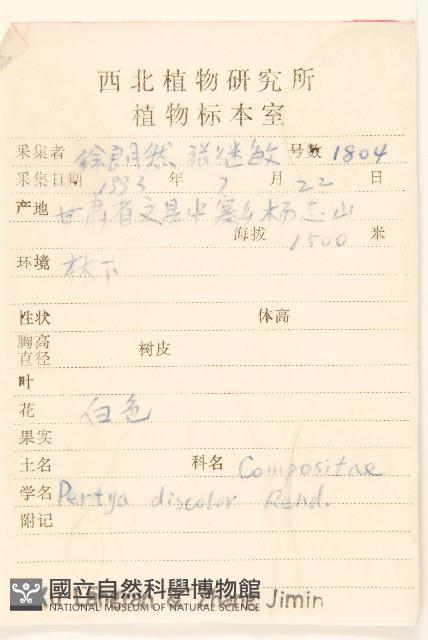 西北植物研究所
植物标本室
采集者 徐朗然 张继敏 号数 1804
采集日期 1993 年 7 月 22 日
产地 甘肃省文县中寨乡 志山
海拔 1500 米
环境 林下
性状 体高
胸高直径 树皮
叶
花 白色
果实
土名 科名 Compositae
学名 Pertya discolor Rehd.
附记
Xu Langran & Zhang Jimin
國立自然科學博物館
NATIONAL MUSEUM OF NATURAL SCIENCE